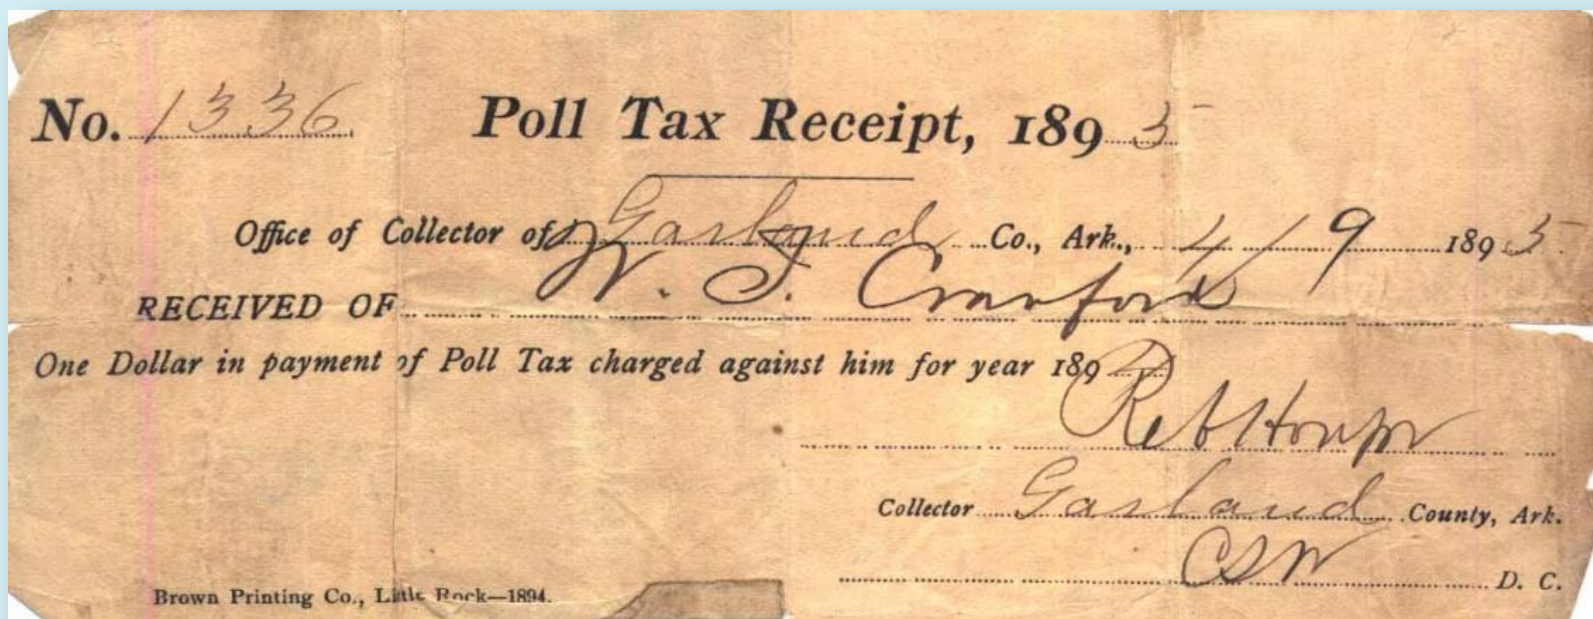 No. 1336 Poll Tax Receipt, 1895
Office of Collector of Garland Co., Ark., 4/9 1895
RECEIVED OF W. J. Crawford
One Dollar in payment of Poll Tax charged against him for year 189
Reb Houpt
Collector Garland County, Ark.
CSW D. C.
Brown Printing Co., Little Rock—1894.